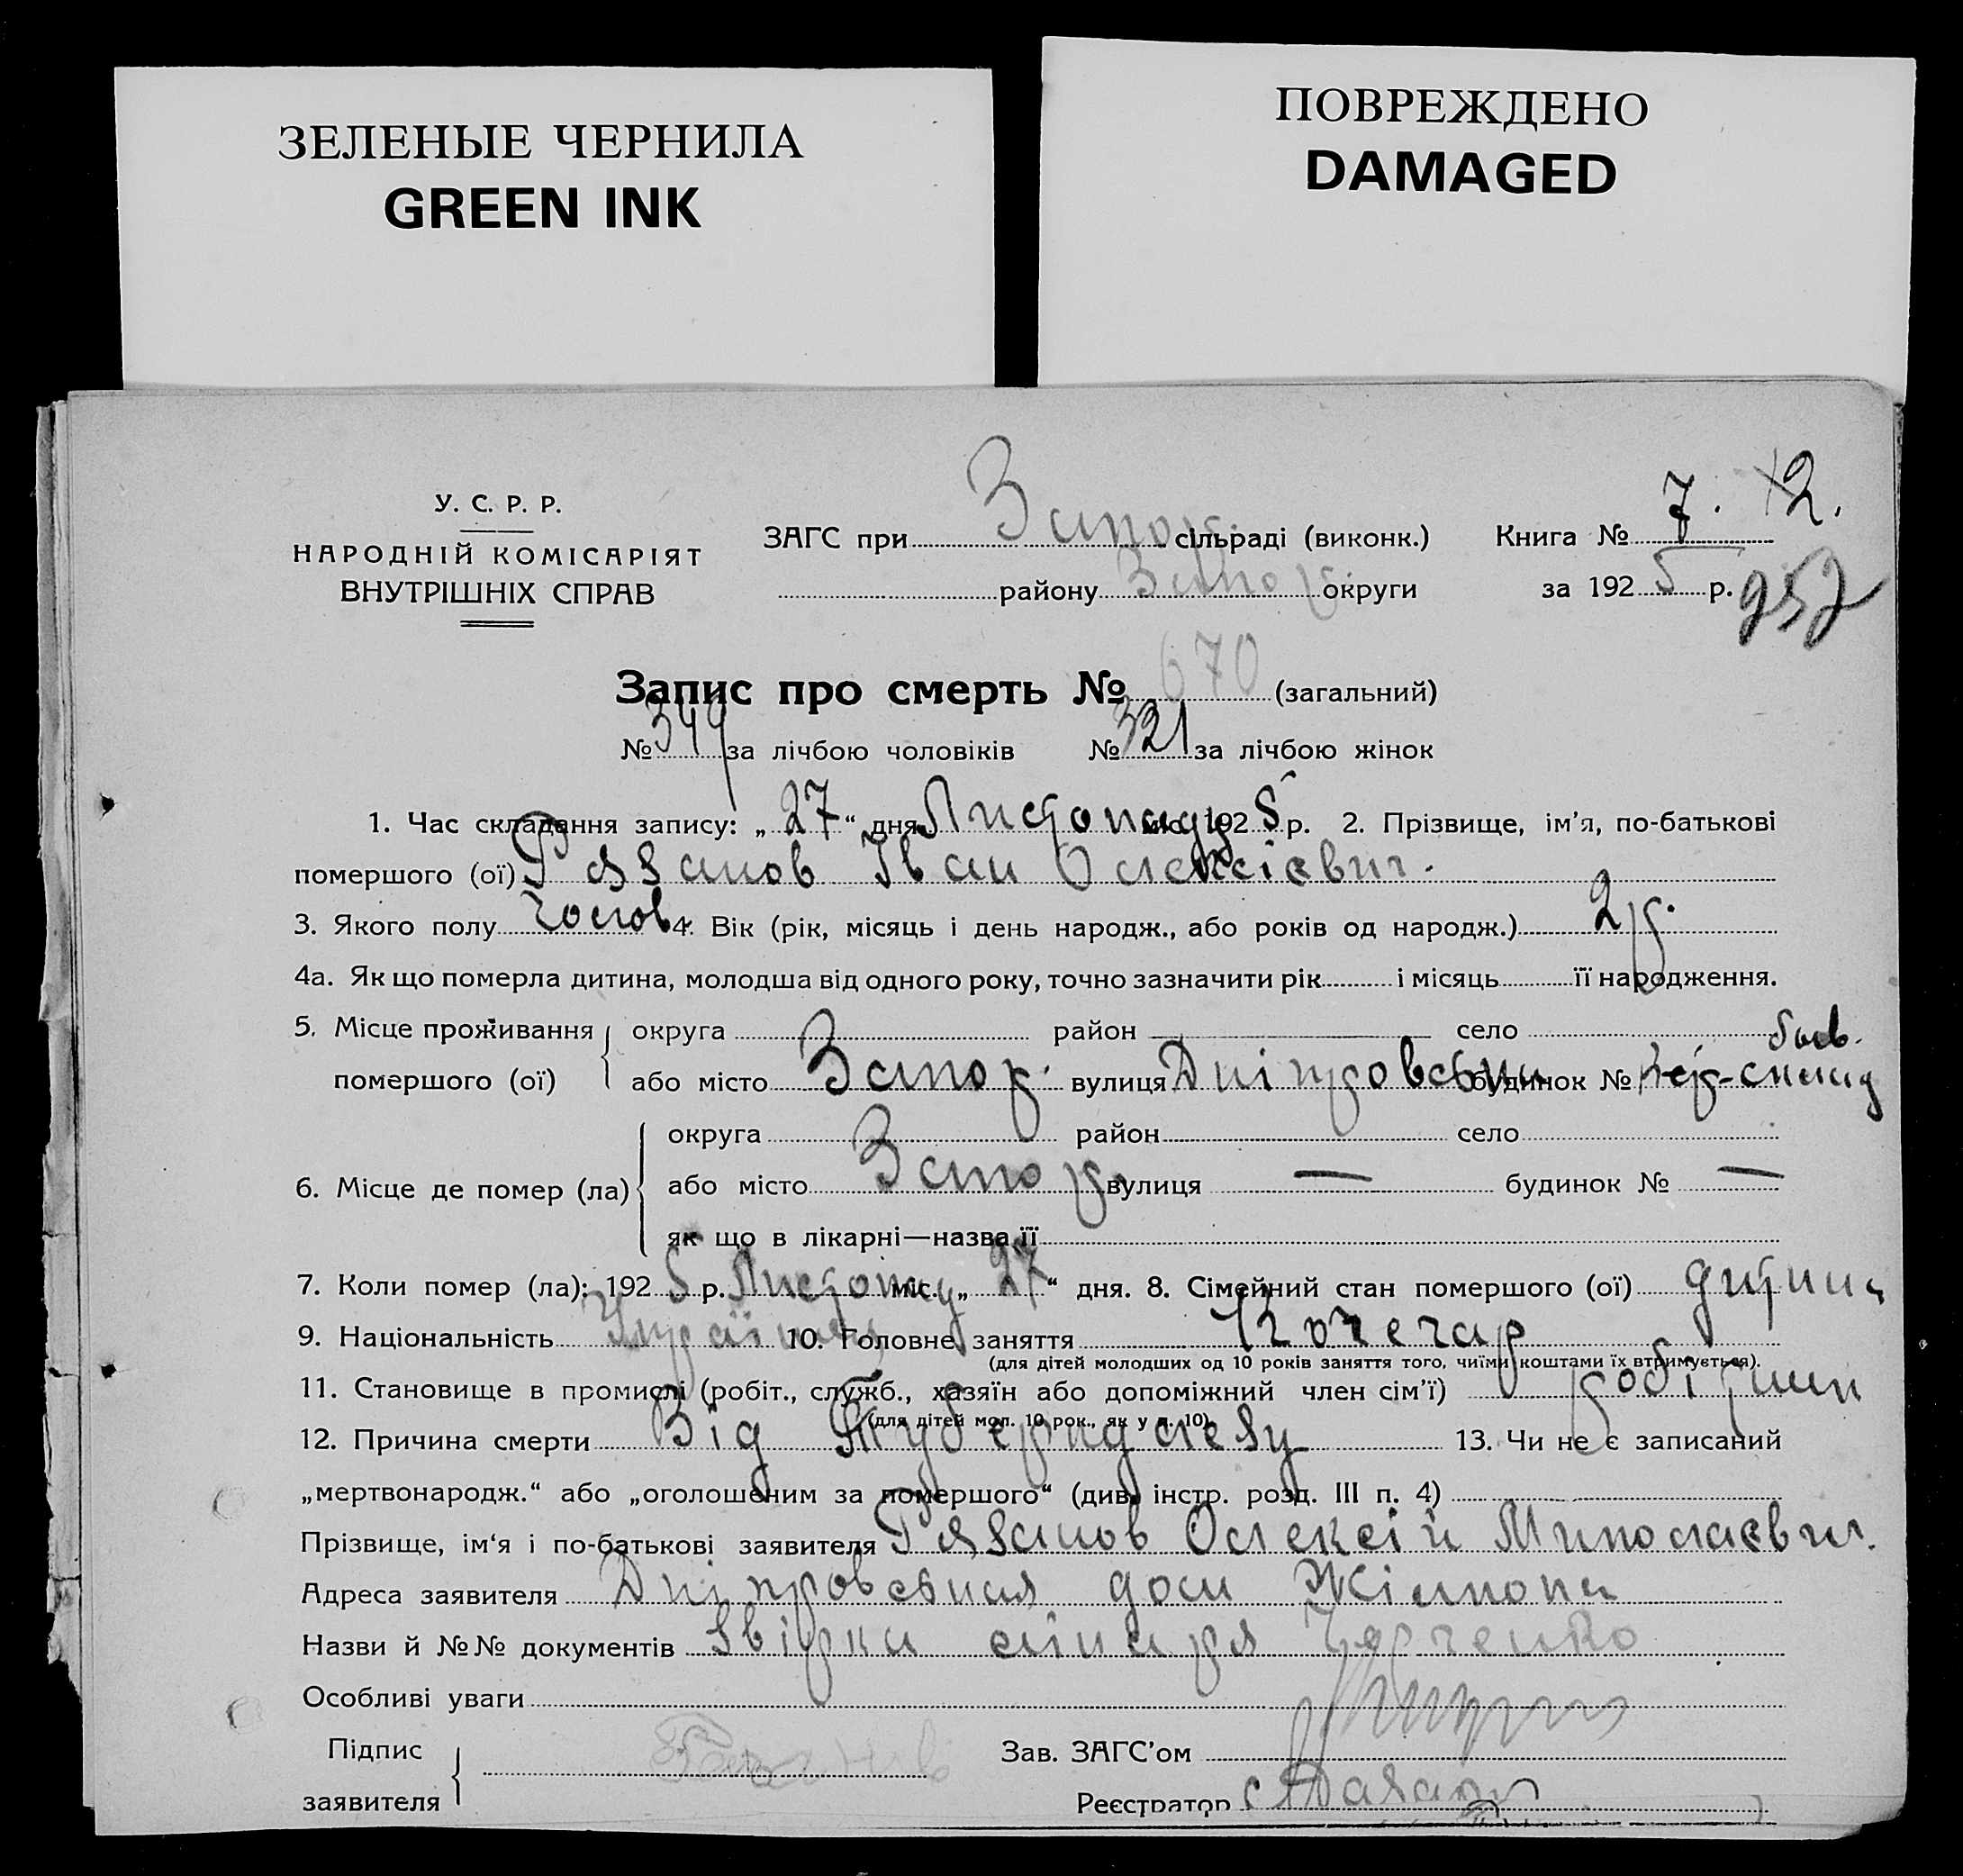 ЗЕЛЕНЫЕ ЧЕРНИЛА
GREEN INK
ПОВРЕЖДЕНО
DAMAGED
У. С. Р. Р.
НАРОДНІЙ КОМІСАРІЯТ
ВНУТРІШНІХ СПРАВ
ЗАГС при Запор. сільраді (виконк.)
району Запор. округи
Книга № 7. 12.
за 192 5 р. 952
Запис про смерть № 670 (загальний)
№ 349 за лічбою чоловіків № 321 за лічбою жінок
1. Час складання запису: „ 27 “ дня Листопаду міс. 192 5 р. 2. Прізвище, ім’я, по-батькові
помершого (ої) Рязанов Іван Олексієвич.
3. Якого полу чолов. 4. Вік (рік, місяць і день народж., або років од народж.) 2 р.
4а. Як що померла дитина, молодша від одного року, точно зазначити рік і місяць її народження.
5. Місце проживання округа район село
помершого (ої) або місто Запор. вулиця Дніпровська будинок №
6. Місце де помер (ла) округа район село
або місто Запор. вулиця — будинок № —
як що в лікарні—назва її
7. Коли помер (ла): 192 5 р. Листопаду міс. „ 27 “ дня. 8. Сімейний стан помершого (ої) дитина
9. Національність 10. Головне заняття Кочегар
(для дітей молодших од 10 років заняття того, чиїми коштами їх втримується).
11. Становище в промислі (робіт., служб., хазяїн або допоміжний член сім’ї) робітник
(для дітей мол. 10 рок., як у п. 10)
12. Причина смерти Від Туберкульозу 13. Чи не є записаний
„мертвонародж.“ або „оголошеним за помершого“ (див. інстр. розд. III п. 4)
Прізвище, ім‘я і по-батькові заявителя Рязанов Олексій Миколаєвич.
Адреса заявителя Дніпровська дом
Назви й №№ документів
Особливі уваги
Підпис
заявителя
Зав. ЗАГС’ом
Реєстратор